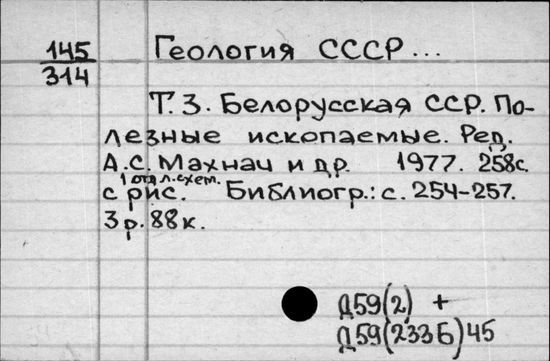 145
314
Геология СССР ...
Т. 3. Белорусская ССР. По-
лезные ископаемые. Ред.
А.С. Махнач и др. 1977. 258с.
1 отд. л. схем.
с рис. Библиогр.: с. 254-257.
3 р. 88 к.
Д59(2) +
Д59(233Б)45